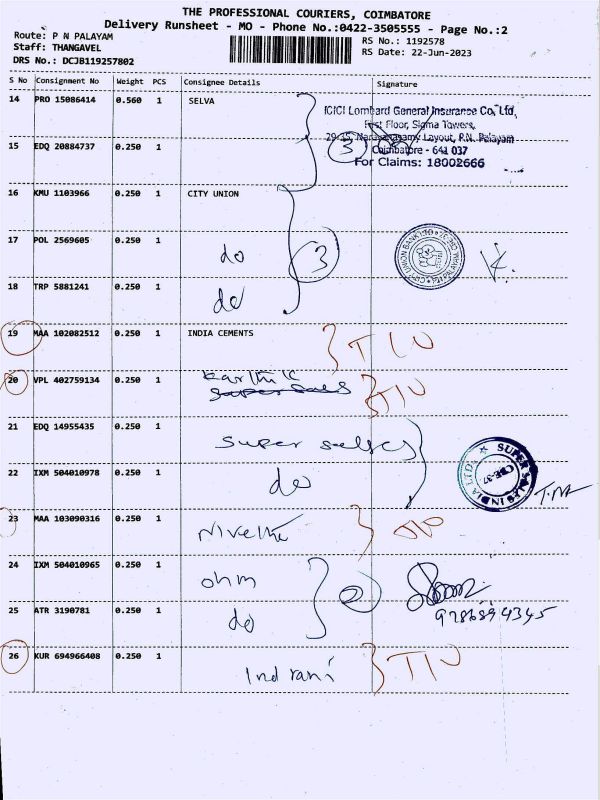 THE PROFESSIONAL COURIERS, COIMBATORE
Delivery Runsheet - MO - Phone No.:0422-3505555 - Page No.:2
Route: P N PALAYAM
Staff: THANGAVEL
DRS No.: DCJB119257802
RS No.: 1192578
RS Date: 22-Jun-2023
S No Consignment No Weight PCS Consignee Details Signature
14 PRO 15086414 0.560 1 SELVA
ICICI Lombard General Insurance Co, Ltd,
First Floor, Sigma Towers,
Layout, P.N. Palayam
15 EDQ 20884737 0.250 1 3
Coimbatore - 641 037
For Claims: 18002666
16 KMU 1103966 0.250 1 CITY UNION
17 POL 2569605 0.250 1 do 3
CITY UNION BANK LTD
18 TRP 5881241 0.250 1 do
19 MAA 102082512 0.250 1 INDIA CEMENTS
20 VPL 402759134 0.250 1 Karthik
Super Sales
21 EDQ 14955435 0.250 1 Super sales
SUPER SALES INDIA LTD
CBE-37
22 IXM 504010978 0.250 1 do
23 MAA 103090316 0.250 1
24 IXM 504010965 0.250 1 ohm 2
25 ATR 3190781 0.250 1 do
26 KUR 694966408 0.250 1 Indrani